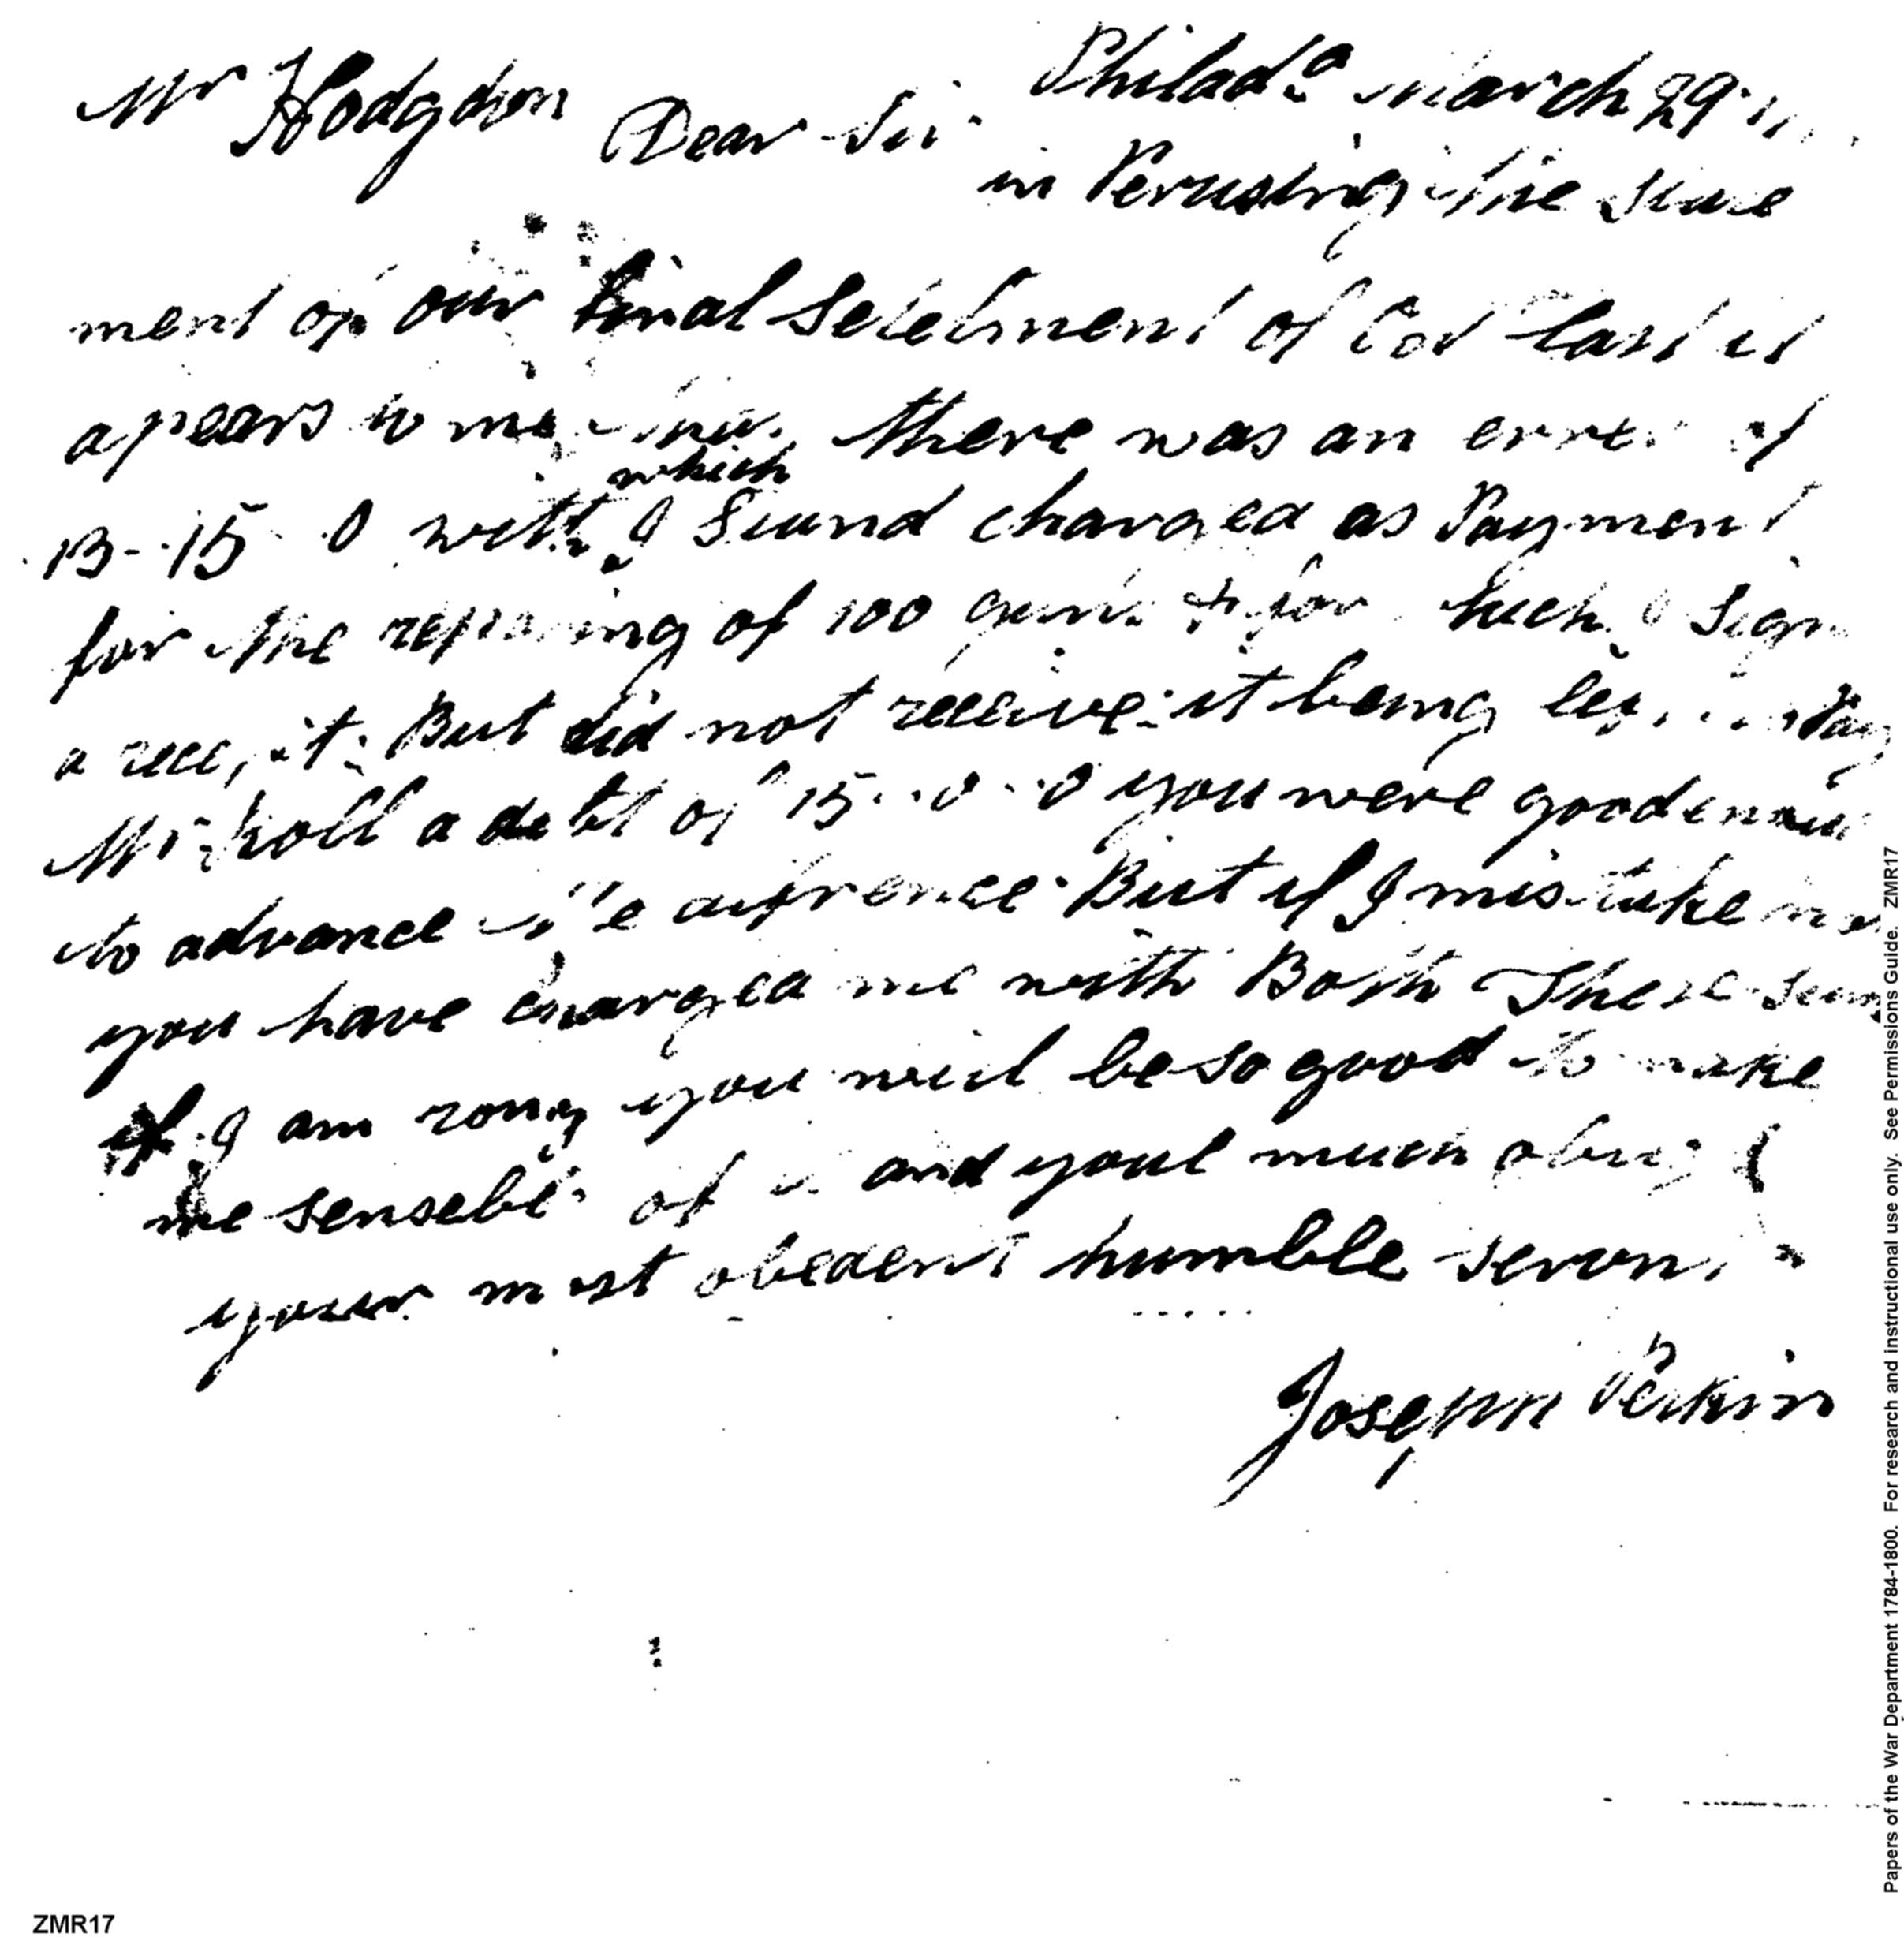 Philada March 29
Mr Hodgdon Dear Sir
in Perusing the State
ment of our final Setelment of Oct last it
apears to me that there was an error of
which
13-15-0 with I found charged as Payment
for the repairing of 100 guns & for Such I Sign
a receipt But did not receive it being to Pay
Mr a debt of 15-0-0 you were good enou
to advance the difrence But if I mistake not
you have charged me with Both These Sums
if I am rong you will be so good to make
me senseble of it and youl much oblige
your most obedent humble servant
Joseph Perkin
Papers of the War Department 1784-1800. For research and instructional use only. See Permissions Guide. ZMR17
ZMR17